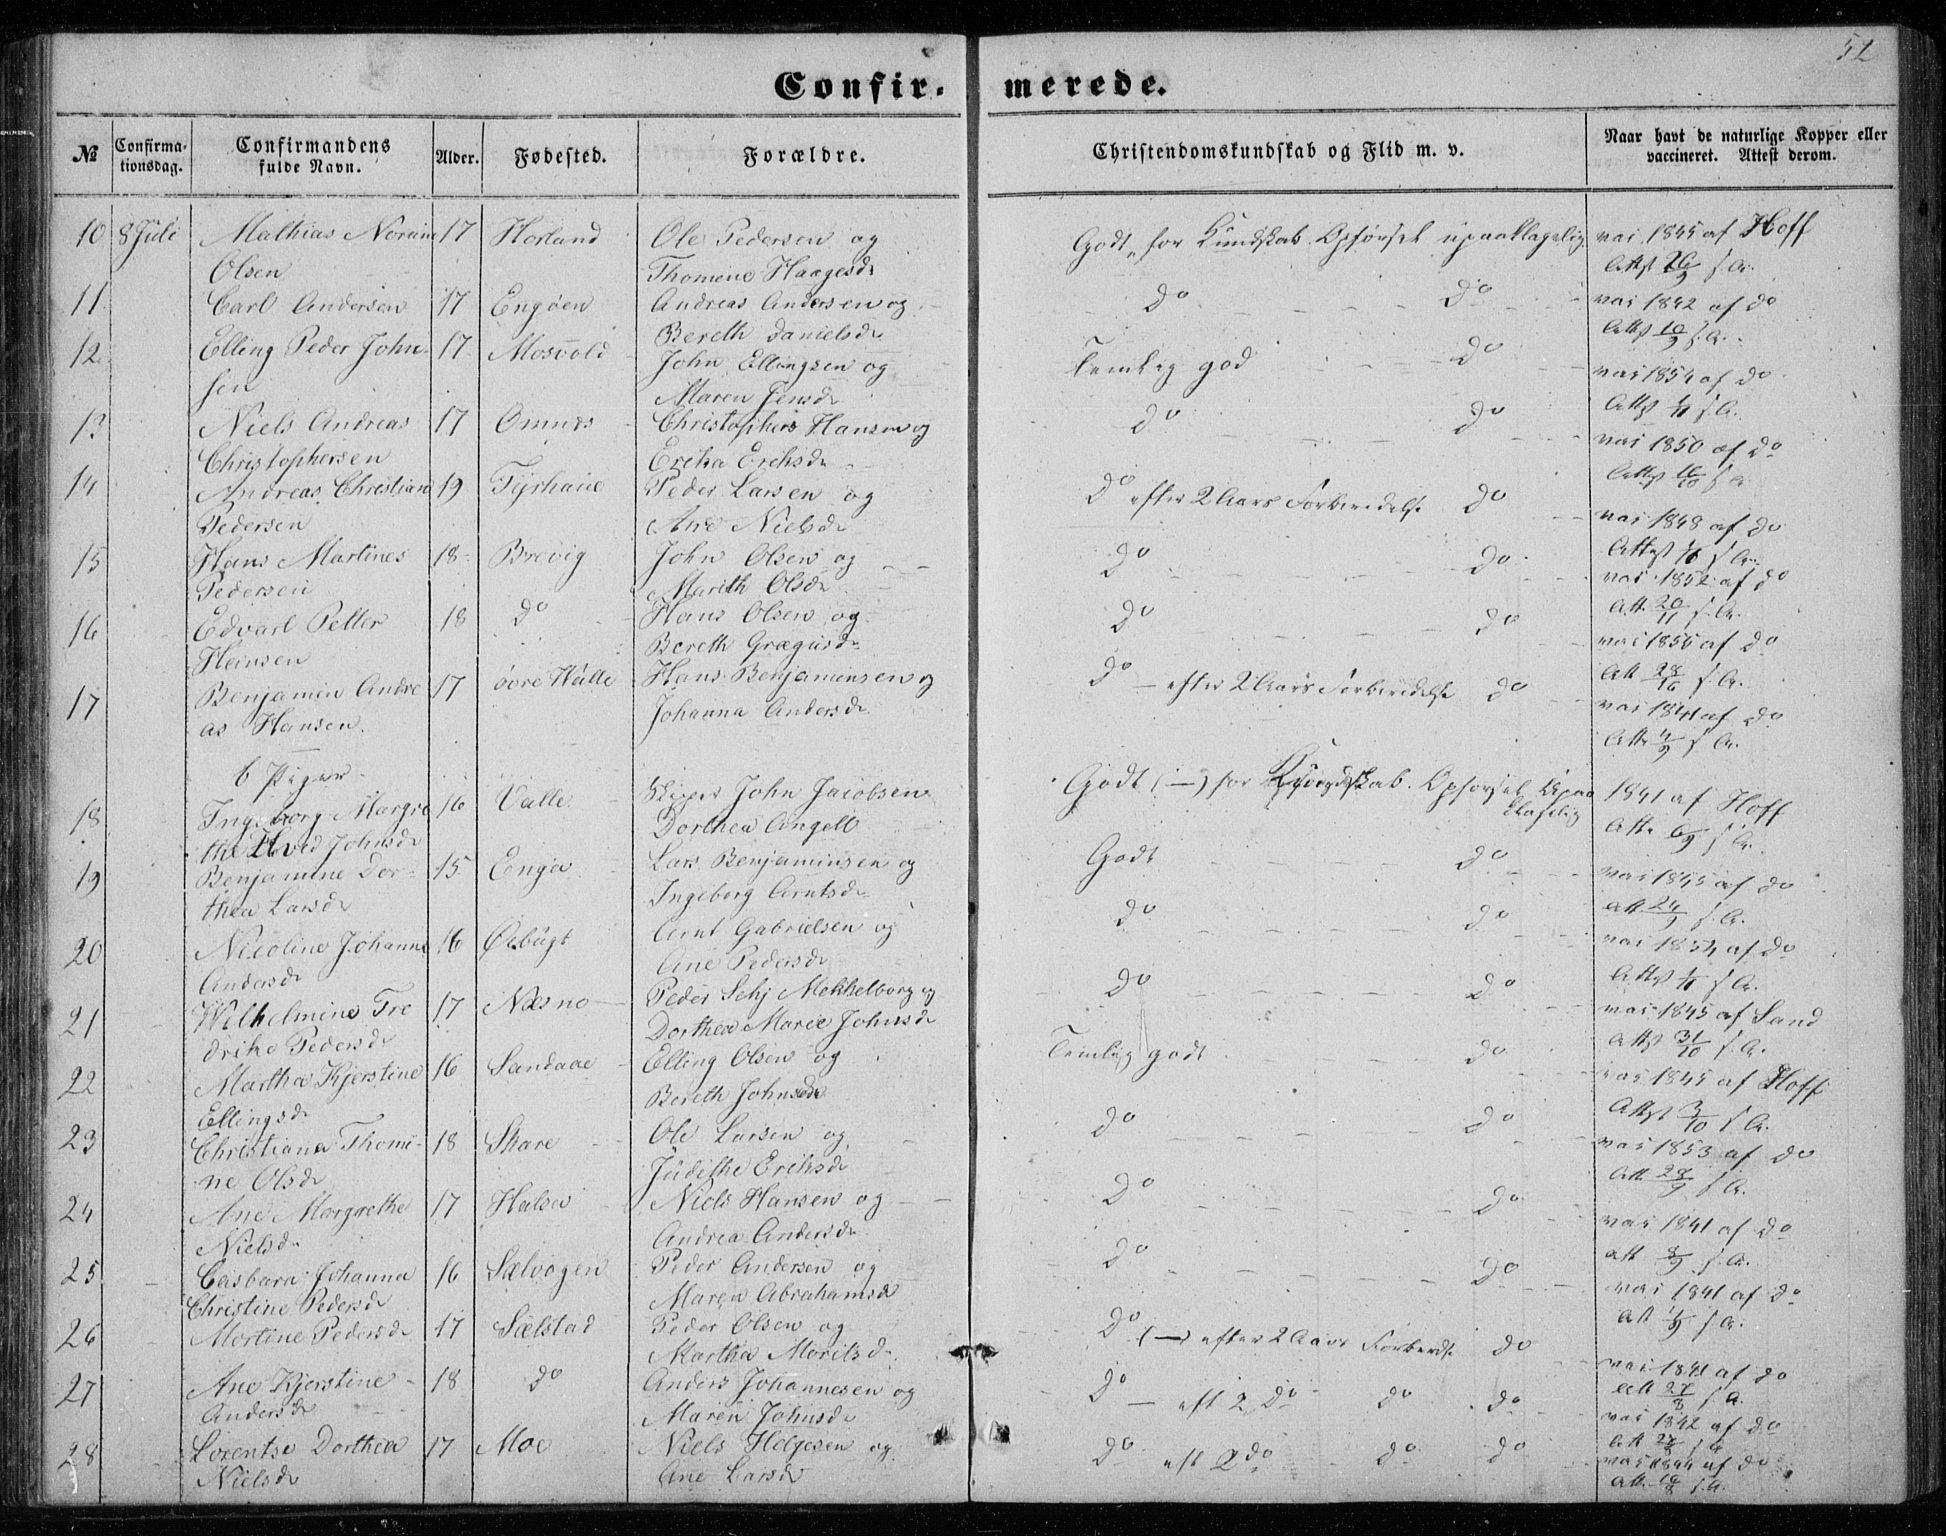 52
Confir- merede.
№ Confirma-tionsdag. Confirmandens fulde Navn. Alder. Fødested. Forældre. Christendomskundskab og Flid m. v. Naar havt de naturlige Kopper eller vaccineret. Attest derom.
10 8 Juli Mathias Norum 17 Horland Ole Pedersen og Godt for Kundskab. Opførsel upaaklagelig vac 1845 af Hoff
Olsen Thomene Haagesd. Attst 26/9 s. A.
11 Carl Andersen 17 Engøen Andreas Andersen og do do vac 1842 af do
Bereth Danielsd. Attst 10/9 s. A.
12 Elling Peder John- 17 Mosvold John Ellingsen og Temlig god do vac 1854 af do
sen Maren Jensd. Attst s. A.
13 Niels Andreas 17 Omnes Christopher Hansen og do do vac 1850 af do
Christophersen Erika Eriksd. Attst 16/10 s. A.
14 Andreas Christian 19 Tyrhaue Peder Larsen og do efter 2 Aars Forberedelse do vac 1848 af do
Pedersen Ane Nielsd. Attst s. A.
15 Hans Martines 18 Brevig John Olsen og do do vac 1852 af do
Pedersen Mareth Olsd. Att. 20/11 s. A.
16 Edvart Petter 18 do Hans Olsen og do do vac 1855 af do
Hansen Bereth Grægusd. Att 28/10 s. A.
17 Benjamin Andre 17 øvre Hatte Hans Benjaminsen og do — efter 2 Aars Forberedelse do vac 1841 af do
as Hansen. Johanna Andersd. Att 4/9 s. A.
b Piger
18 Ingeborg Margre 16 Valle John Jacobsen Godt (—) for Kundskab. Opførsel upaa 1841 af Hoff
the Hvid Johnsd. Dorthea Angell klagelig Att. 6/9 s. A.
19 Benjamine Dor- 15 Enga Lars Benjaminsen og Godt do vac 1845 af do
thea Larsd. Ingeborg Arntsd. Att. 24/9 s. A.
20 Nicoline Johanne 16 Øsbugt Arnt Gabrielsen og do do vac 1854 af do
Andersd. Ane Pedersd. Attst s. A.
21 Wilhelmine Fre 17 Næsno Peder Schj Mekkelborg og do do vac 1845 af Sand
drike Pedersd. Dorthea Marie Johnsd. Attst 31/10 s. A.
22 Martha Kjerstine 16 Sandaae Elling Olsen og Temlig godt do vac 1845 af Hoff
Ellingsd. Bereth Johnsd. Attst 3/10 s. A.
23 Christiana Thomi- 18 Skare Ole Larsen og do do vac 1853 af do
ne Olsd. Judithe Eriksd. Att 28/9 s. A.
24 Ane Margrethe 17 Halsa Niels Hansen og do do vac 1841 af do
Nielsd. Andrea Andersd. att 8/9 s. A.
25 Casbara Johanna 16 Sælvogen Peder Andersen og do do vac 1841 af do
Christine Pedersd. Maren Abrahamsd. Att s. A.
26 Mortine Pedersd. 17 Sælstad Peder Olsen og do (—) efter 2 Aars Forberdse do vac 1841 af do
Martha Moritsd. Att 27/8 s. A.
27 Ane Kjerstine 18 do Anders Johannesen og do — eft 2 do do do vac 1842 af do
Andersd. Maren Johnsd. Att 27/8 s. A.
28 Lorentse Dorthea 17 Moe Niels Helgesen og do eft 2 do do do vac 1844 af do
Nielsd. Ane Larsd. Att. 10/8 s. A.